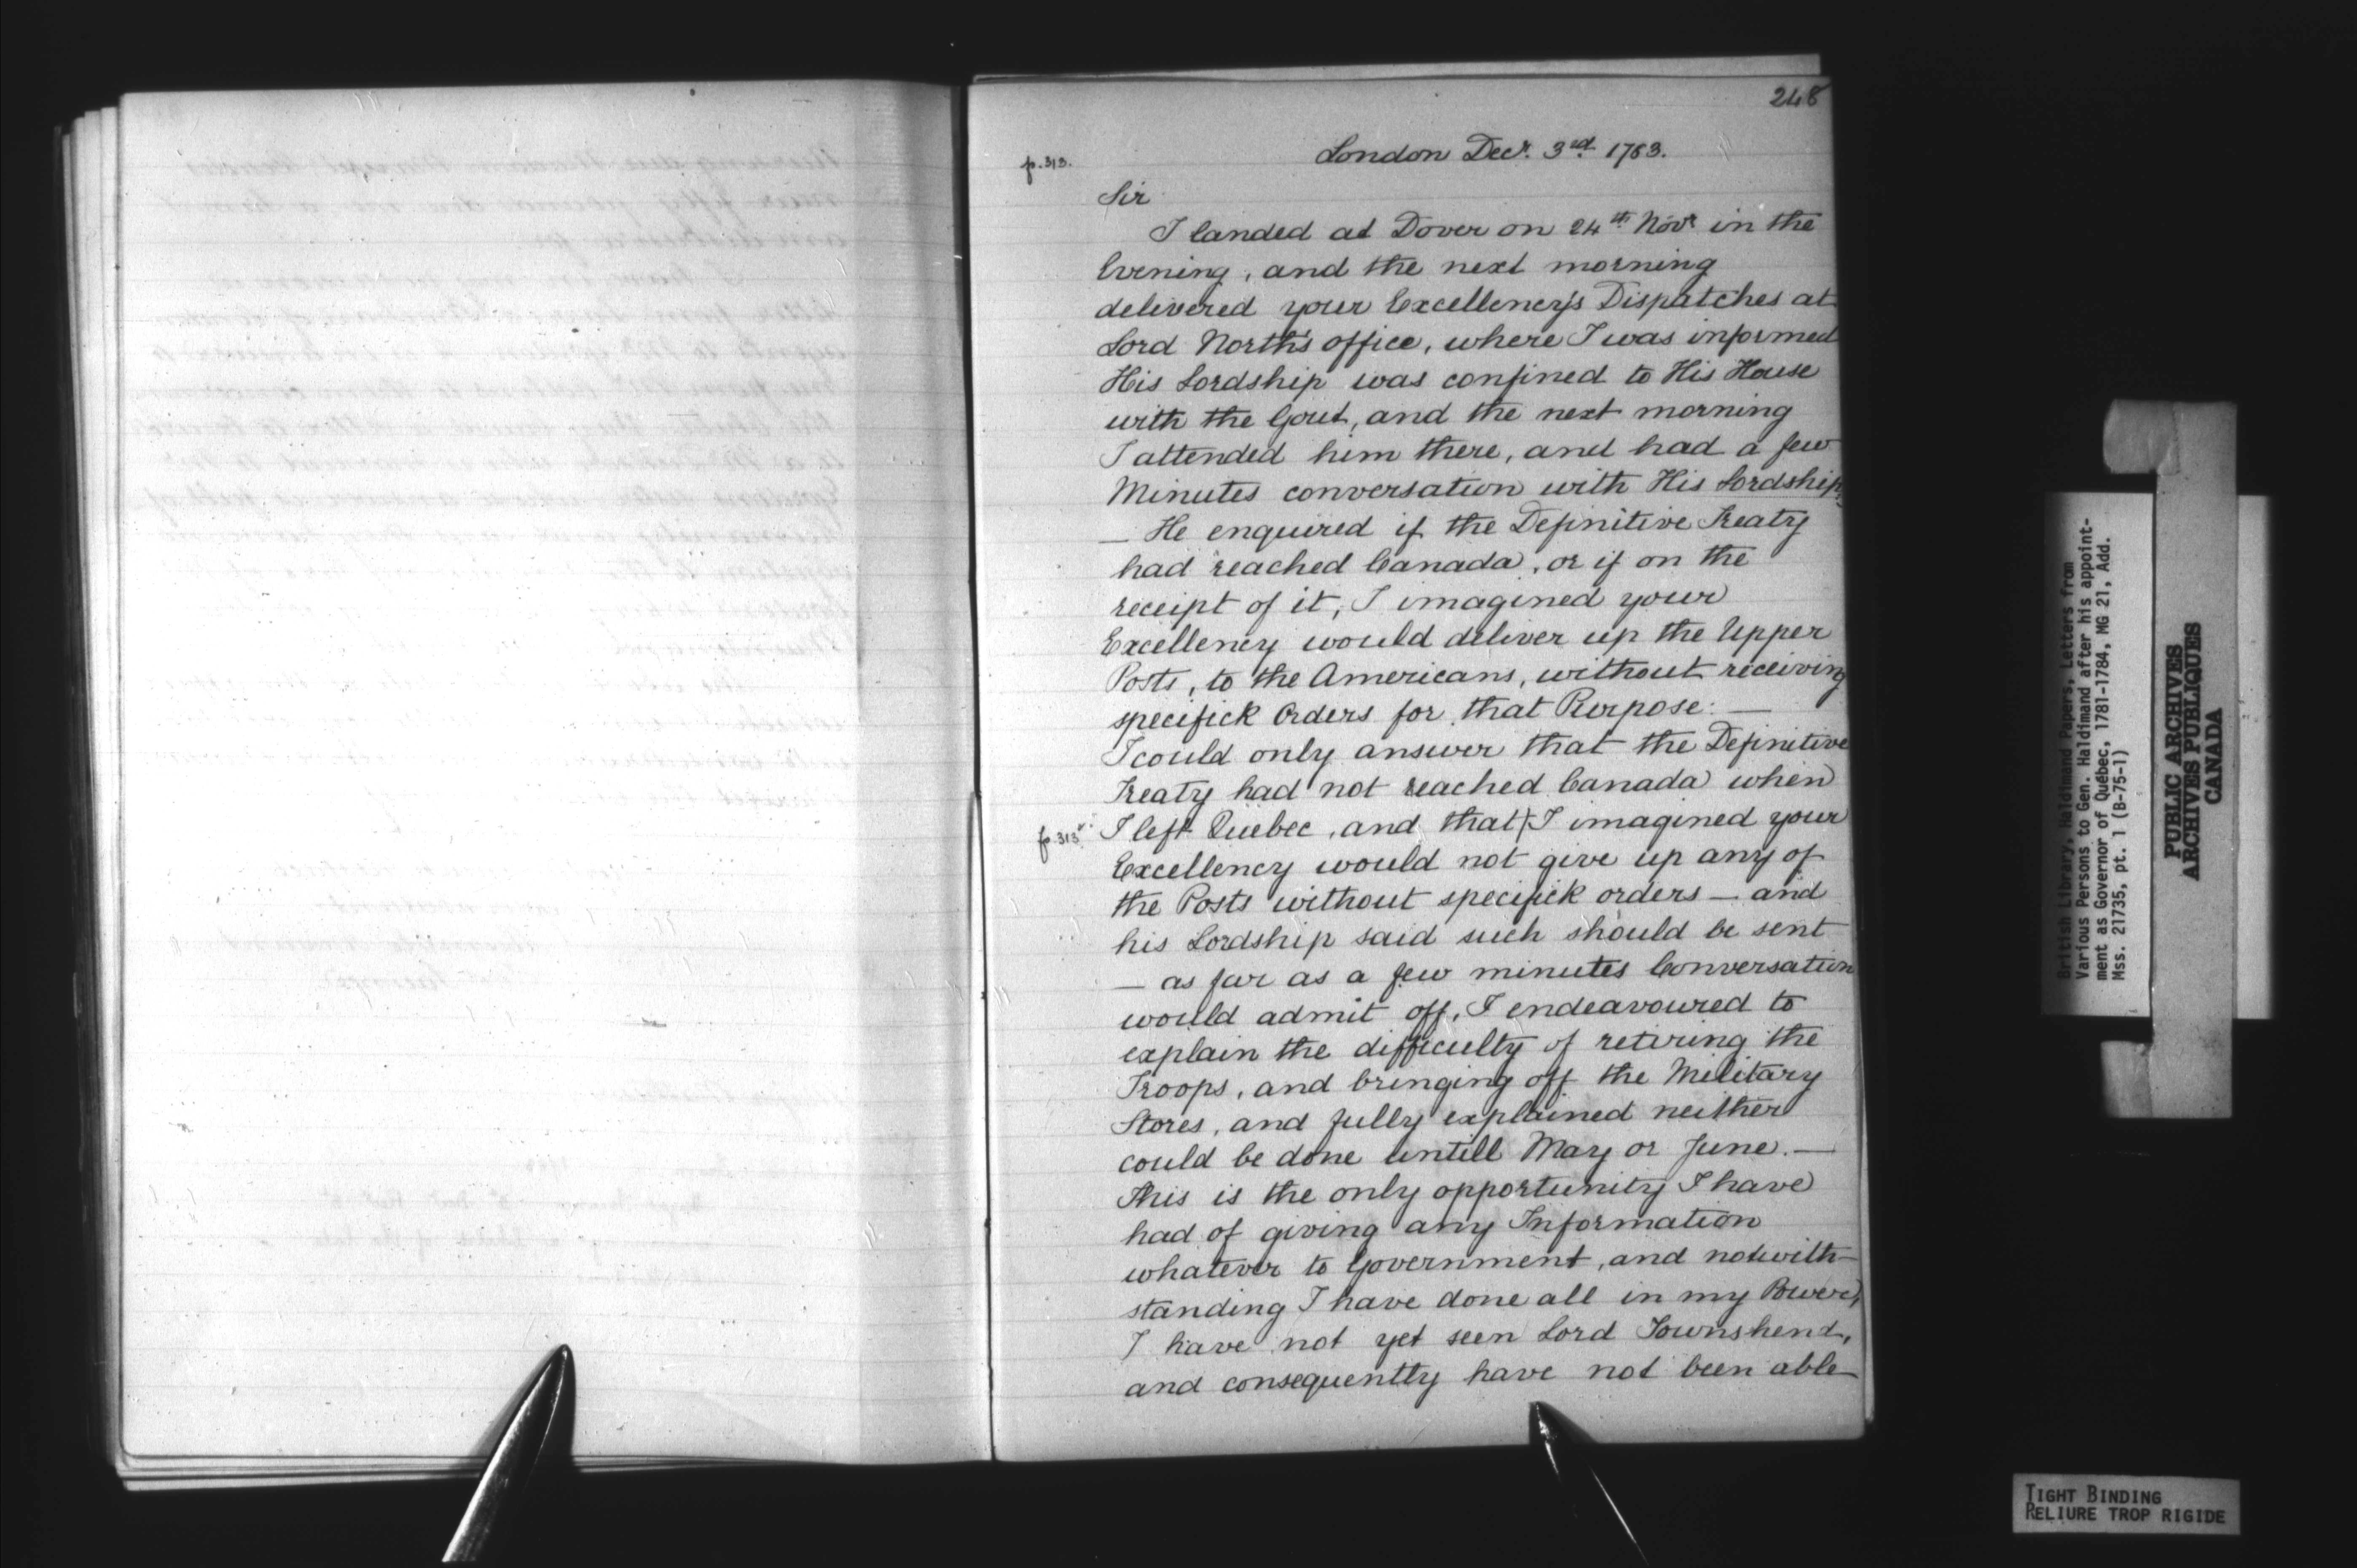 248
p. 313.
London Decr. 3rd. 1783.
Sir
I landed at Dover on 24th. Novr in the
Evening, and the next morning
delivered your Excellency's Dispatches at
Lord North's office, where I was informed
His Lordship was confined to His House
with the Gout, and the next morning
I attended him there, and had a few
Minutes conversation with His Lordship
— He enquired if the Definitive Treaty
had reached Canada, or if on the
receipt of it, I imagined your
Excellency would deliver up the Upper
Posts, to the Americans, without receiving
specifick Orders for that Purpose: —
I could only answer that the Definitive
Treaty had not reached Canada when
p. 313v.
I left Quebec, and that/I imagined your
Excellency would not give up any of
the Posts without specifick orders — and
his Lordship said such should be sent
— as far as a few minutes Conversation
would admit off, I endeavoured to
explain the difficulty of retiring the
Troops, and bringing off the Military
Stores, and fully explained neither
could be done untill May or June. —
This is the only opportunity I have
had of giving any Information
whatever to Government, and notwith-
standing I have done all in my Power,
I have not yet seen Lord Townshend,
and consequently have not been able
British Library, Haldimand Papers, Letters from
Various Persons to Gen. Haldimand after his appoint-
ment as Governor of Québec, 1781-1784, MG 21, Add.
Mss. 21735, pt. 1 (B-75-1)
PUBLIC ARCHIVES
ARCHIVES PUBLIQUES
CANADA
TIGHT BINDING
RELIURE TROP RIGIDE